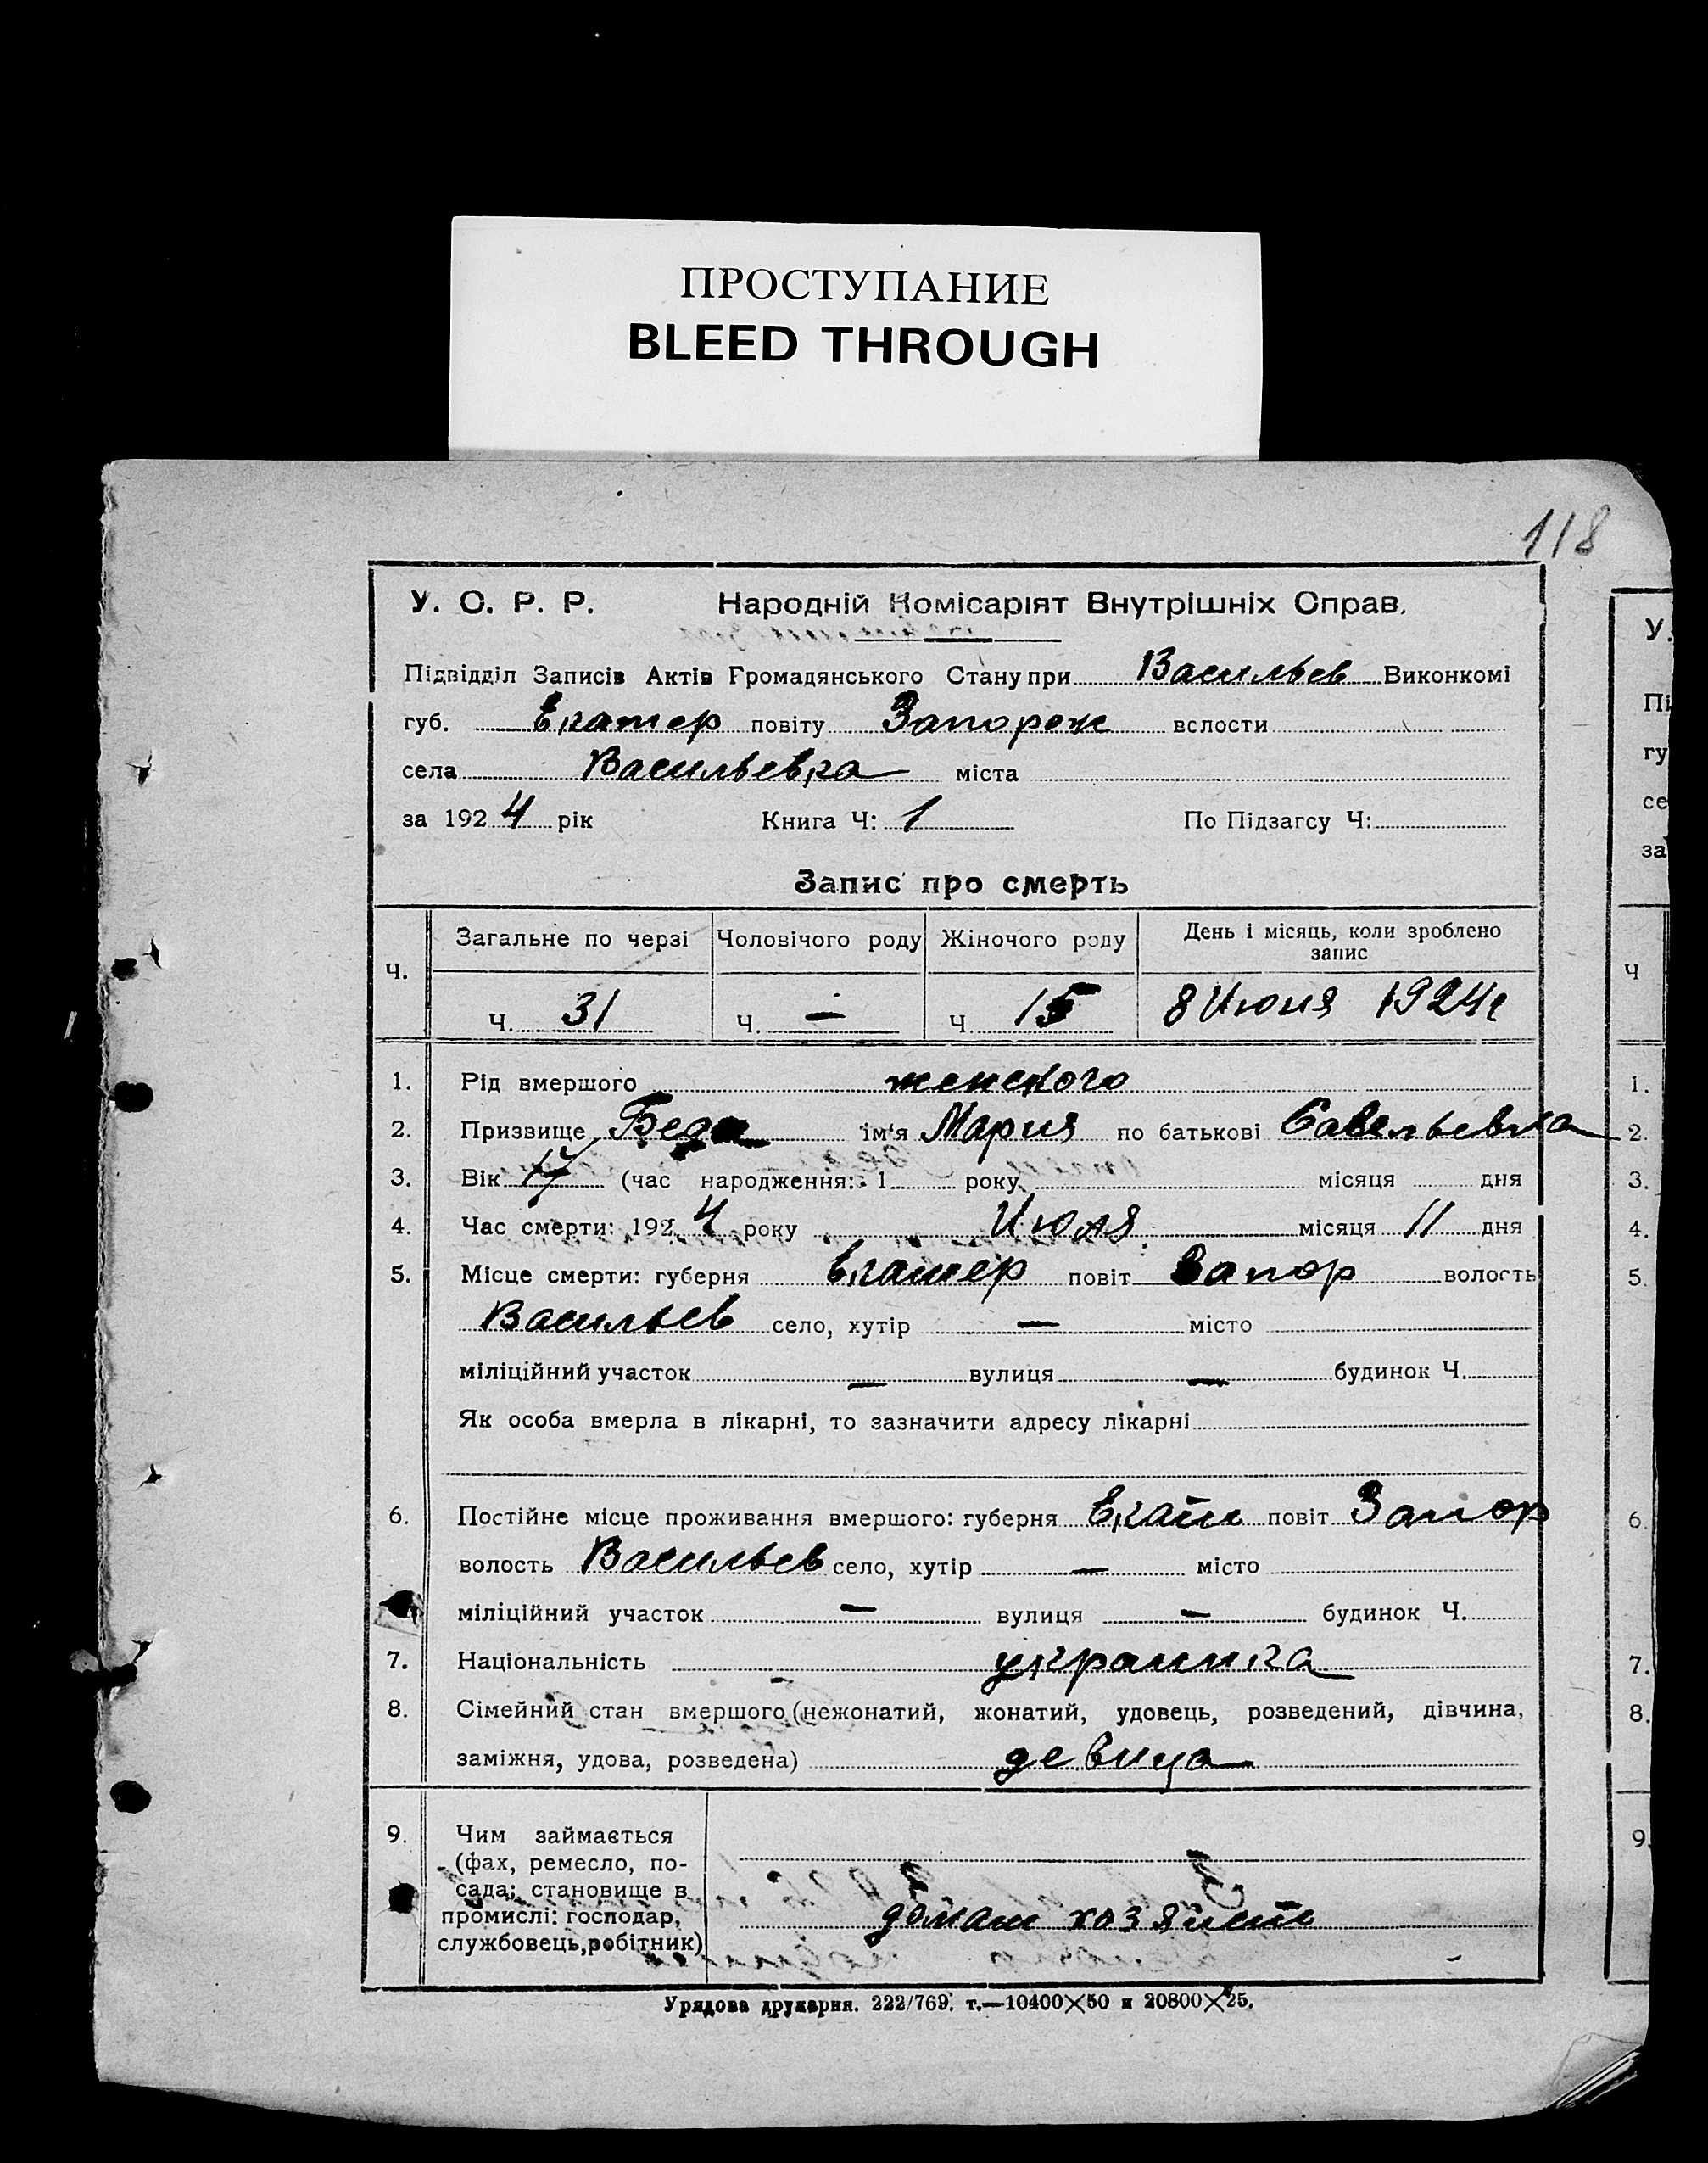 ПРОСТУПАНИЕ
BLEED THROUGH
118
У. С. Р. Р. Народній Комісаріят Внутрішніх Справ.
Підвідділ Записів Актів Громадянського Стану при Васильев Виконкомі
губ. Екатер повіту Запорож вслости
села Васильевка міста
за 1924 рік Книга Ч: 1 По Підзагсу Ч:
Запис про смерть
Ч. Загальне по черзі Чоловічого роду Жіночого роду День і місяць, коли зроблено запис
Ч. 31 Ч. — Ч. 15 8 Июня 1924 г
1. Рід вмершого женского
2. Призвище Беда ім'я Мария по батькові Савельевна
3. Вік 17 (час народження: 1 року місяця дня
4. Час смерти: 1924 року Июля місяця 11 дня
5. Місце смерти: губерня Екатер повіт Запор волость
Васильев село, хутір — місто
міліційний участок — вулиця — будинок Ч.
Як особа вмерла в лікарні, то зазначити адресу лікарні
6. Постійне місце проживання вмершого: губерня Екат повіт Запор
волость Васильев село, хутір — місто
міліційний участок — вулиця — будинок Ч.
7. Національність украинка
8. Сімейний стан вмершого (нежонатий, жонатий, удовець, розведений, дівчина,
заміжня, удова, розведена) девица
9. Чим займається
(фах, ремесло, по-
сада; становище в
промислі: господар,
службовець, робітник)
домаш хозяйст
Урядова друкарня. 222/769. т.—10400×50 и 20800×25.
У.
Пі
гу
се
за
Ч
1.
2.
3.
4.
5.
6.
7.
8.
9.